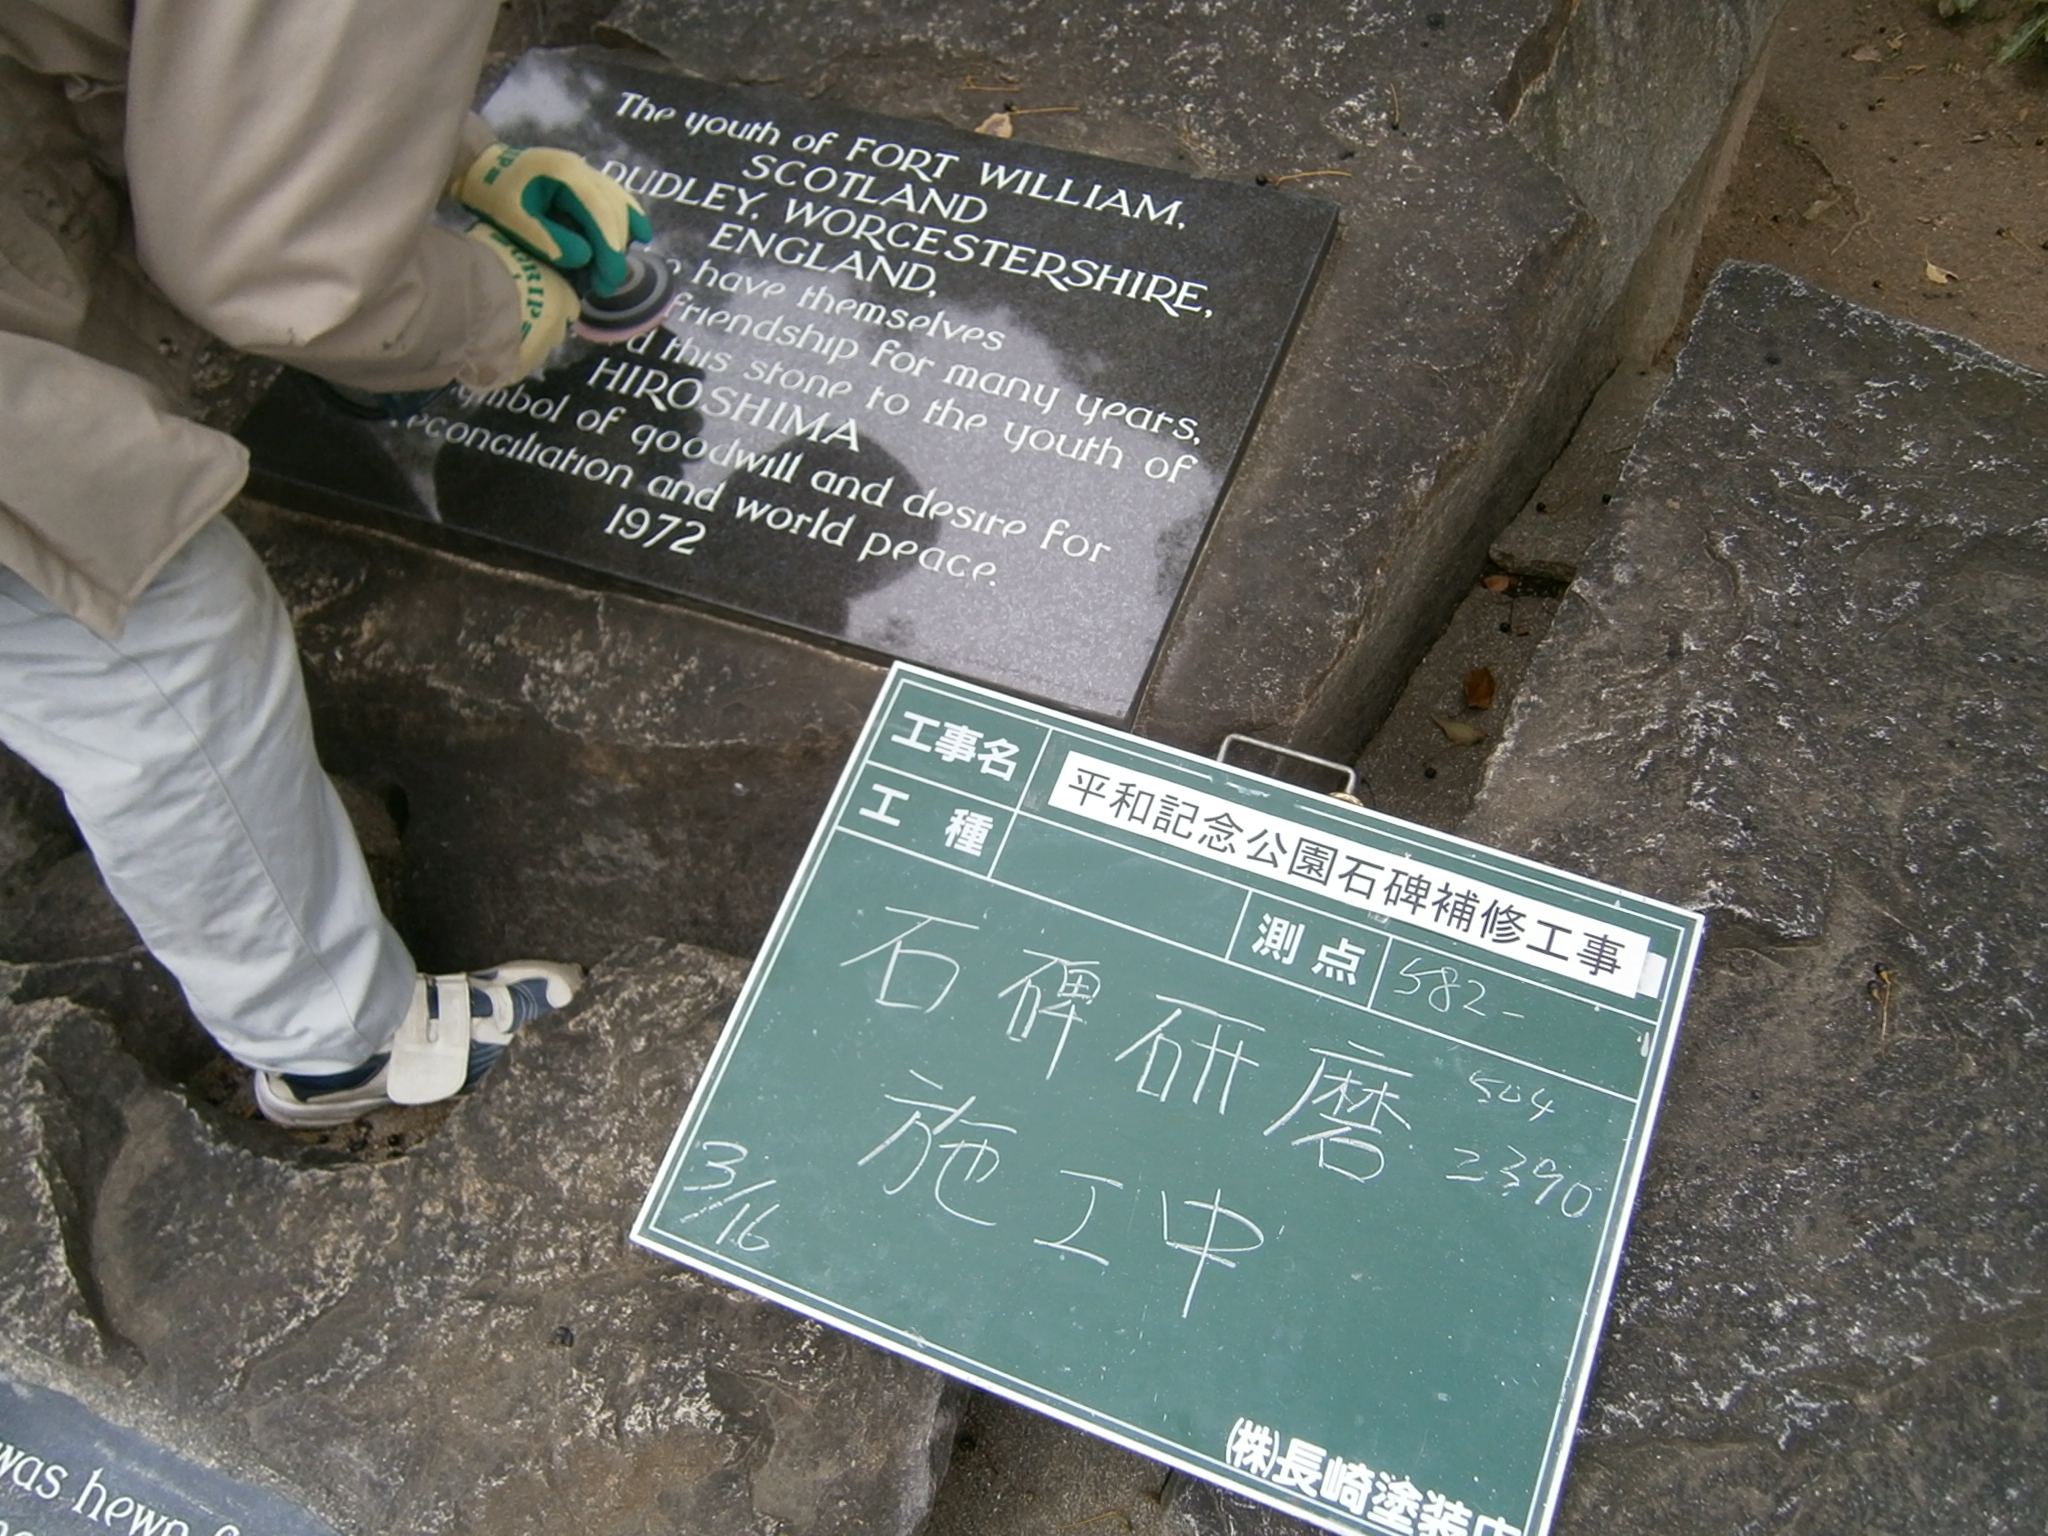 The youth of FORT WILLIAM,
SCOTLAND
DUDLEY, WORCESTERSHIRE,
ENGLAND,
have themselves
friendship for many years,
this stone to the youth of
HIROSHIMA
symbol of goodwill and desire for
reconciliation and world peace.
1972
GRIP
工事名 平和記念公園石碑補修工事
工種
測点 582-
504
2390
石碑研磨
施工中
3/16
㈱長崎塗装店
was hewn